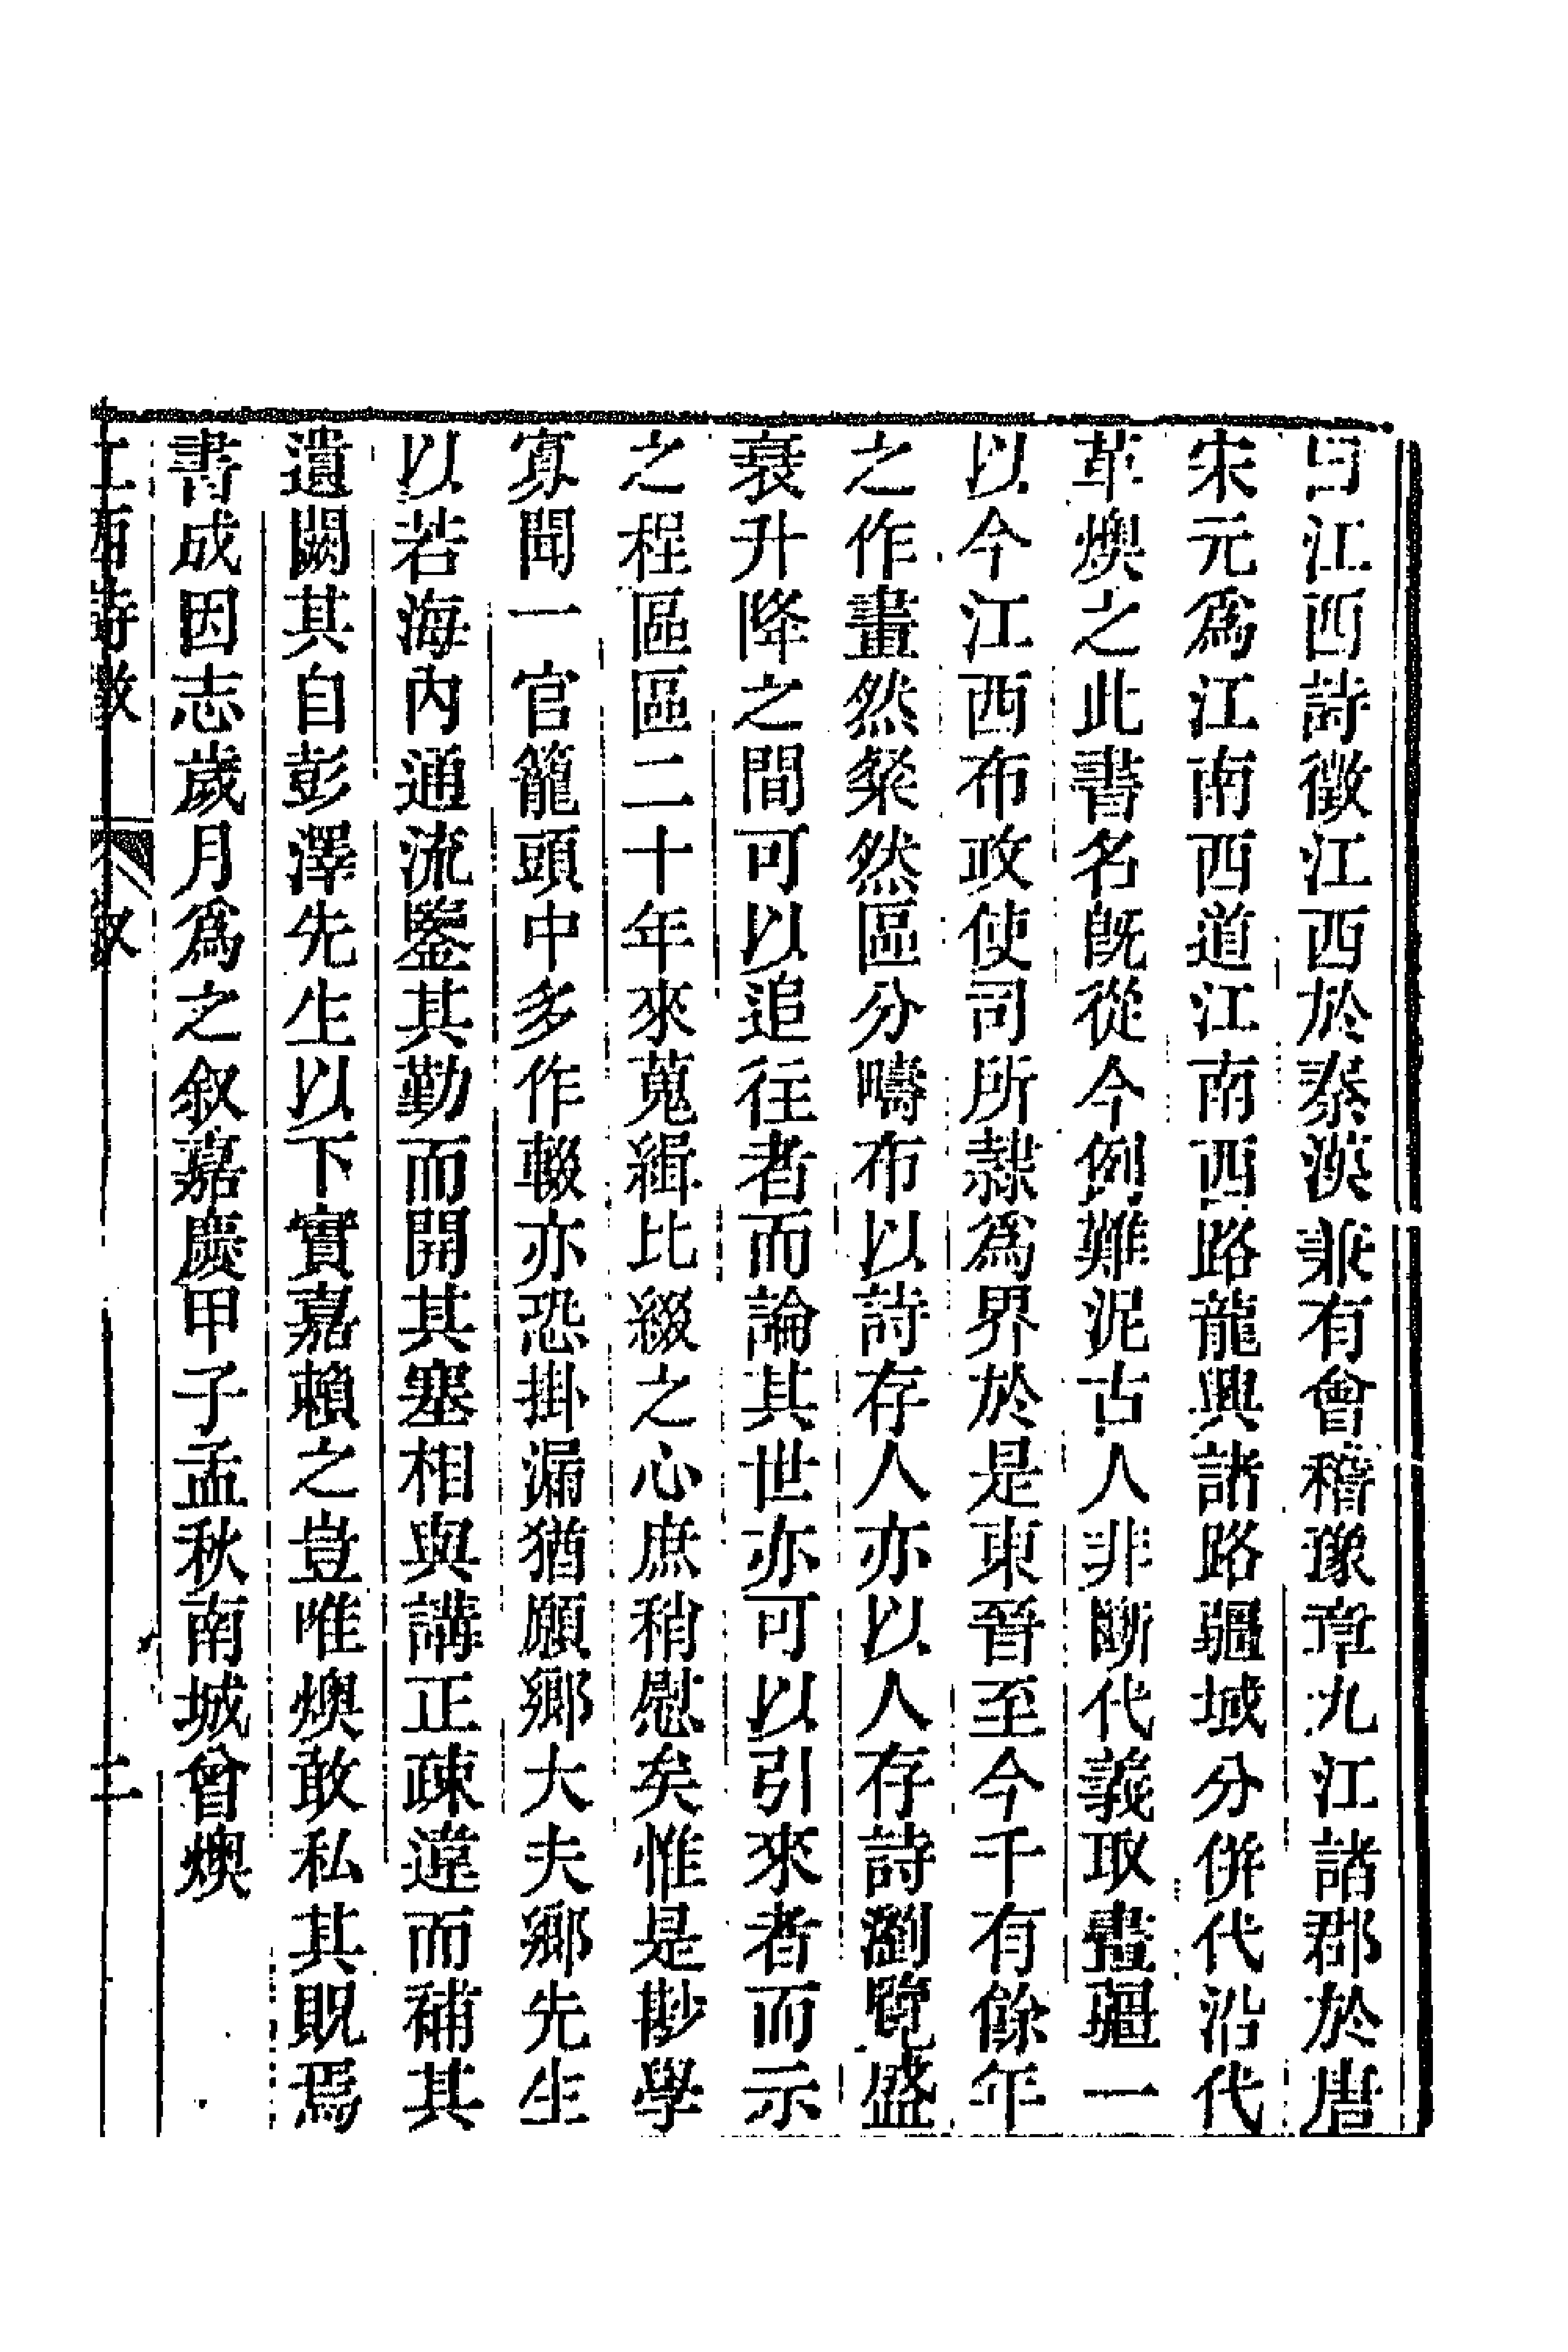 曰江西詩徵江西於秦漢兼有會稽豫章九江諸郡於唐
宋元爲江南西道江南西路龍興諸路疆域分併代沿代
革燠之此書名旣從今例難泥古人非斷代義取畫疆一
以今江西布政使司所隸爲界於是東晉至今千有餘年
之作畫然粲然區分疇布以詩存人亦以人存詩瀏覽盛
衰升降之間可以追往者而論其世亦可以引來者而示
之程區區二十年來蒐緝比綴之心庶稍慰矣惟是尠學
寡聞一官籠頭中多作輟亦恐掛漏猶願鄉大夫鄉先生
以若海內通流鑒其勤而開其塞相與講正疎違而補其
遺闕其自彭澤先生以下實嘉賴之豈唯燠敢私其貺焉
書成因志歲月爲之叙嘉慶甲子孟秋南城曾燠
江西詩徵 叙 二